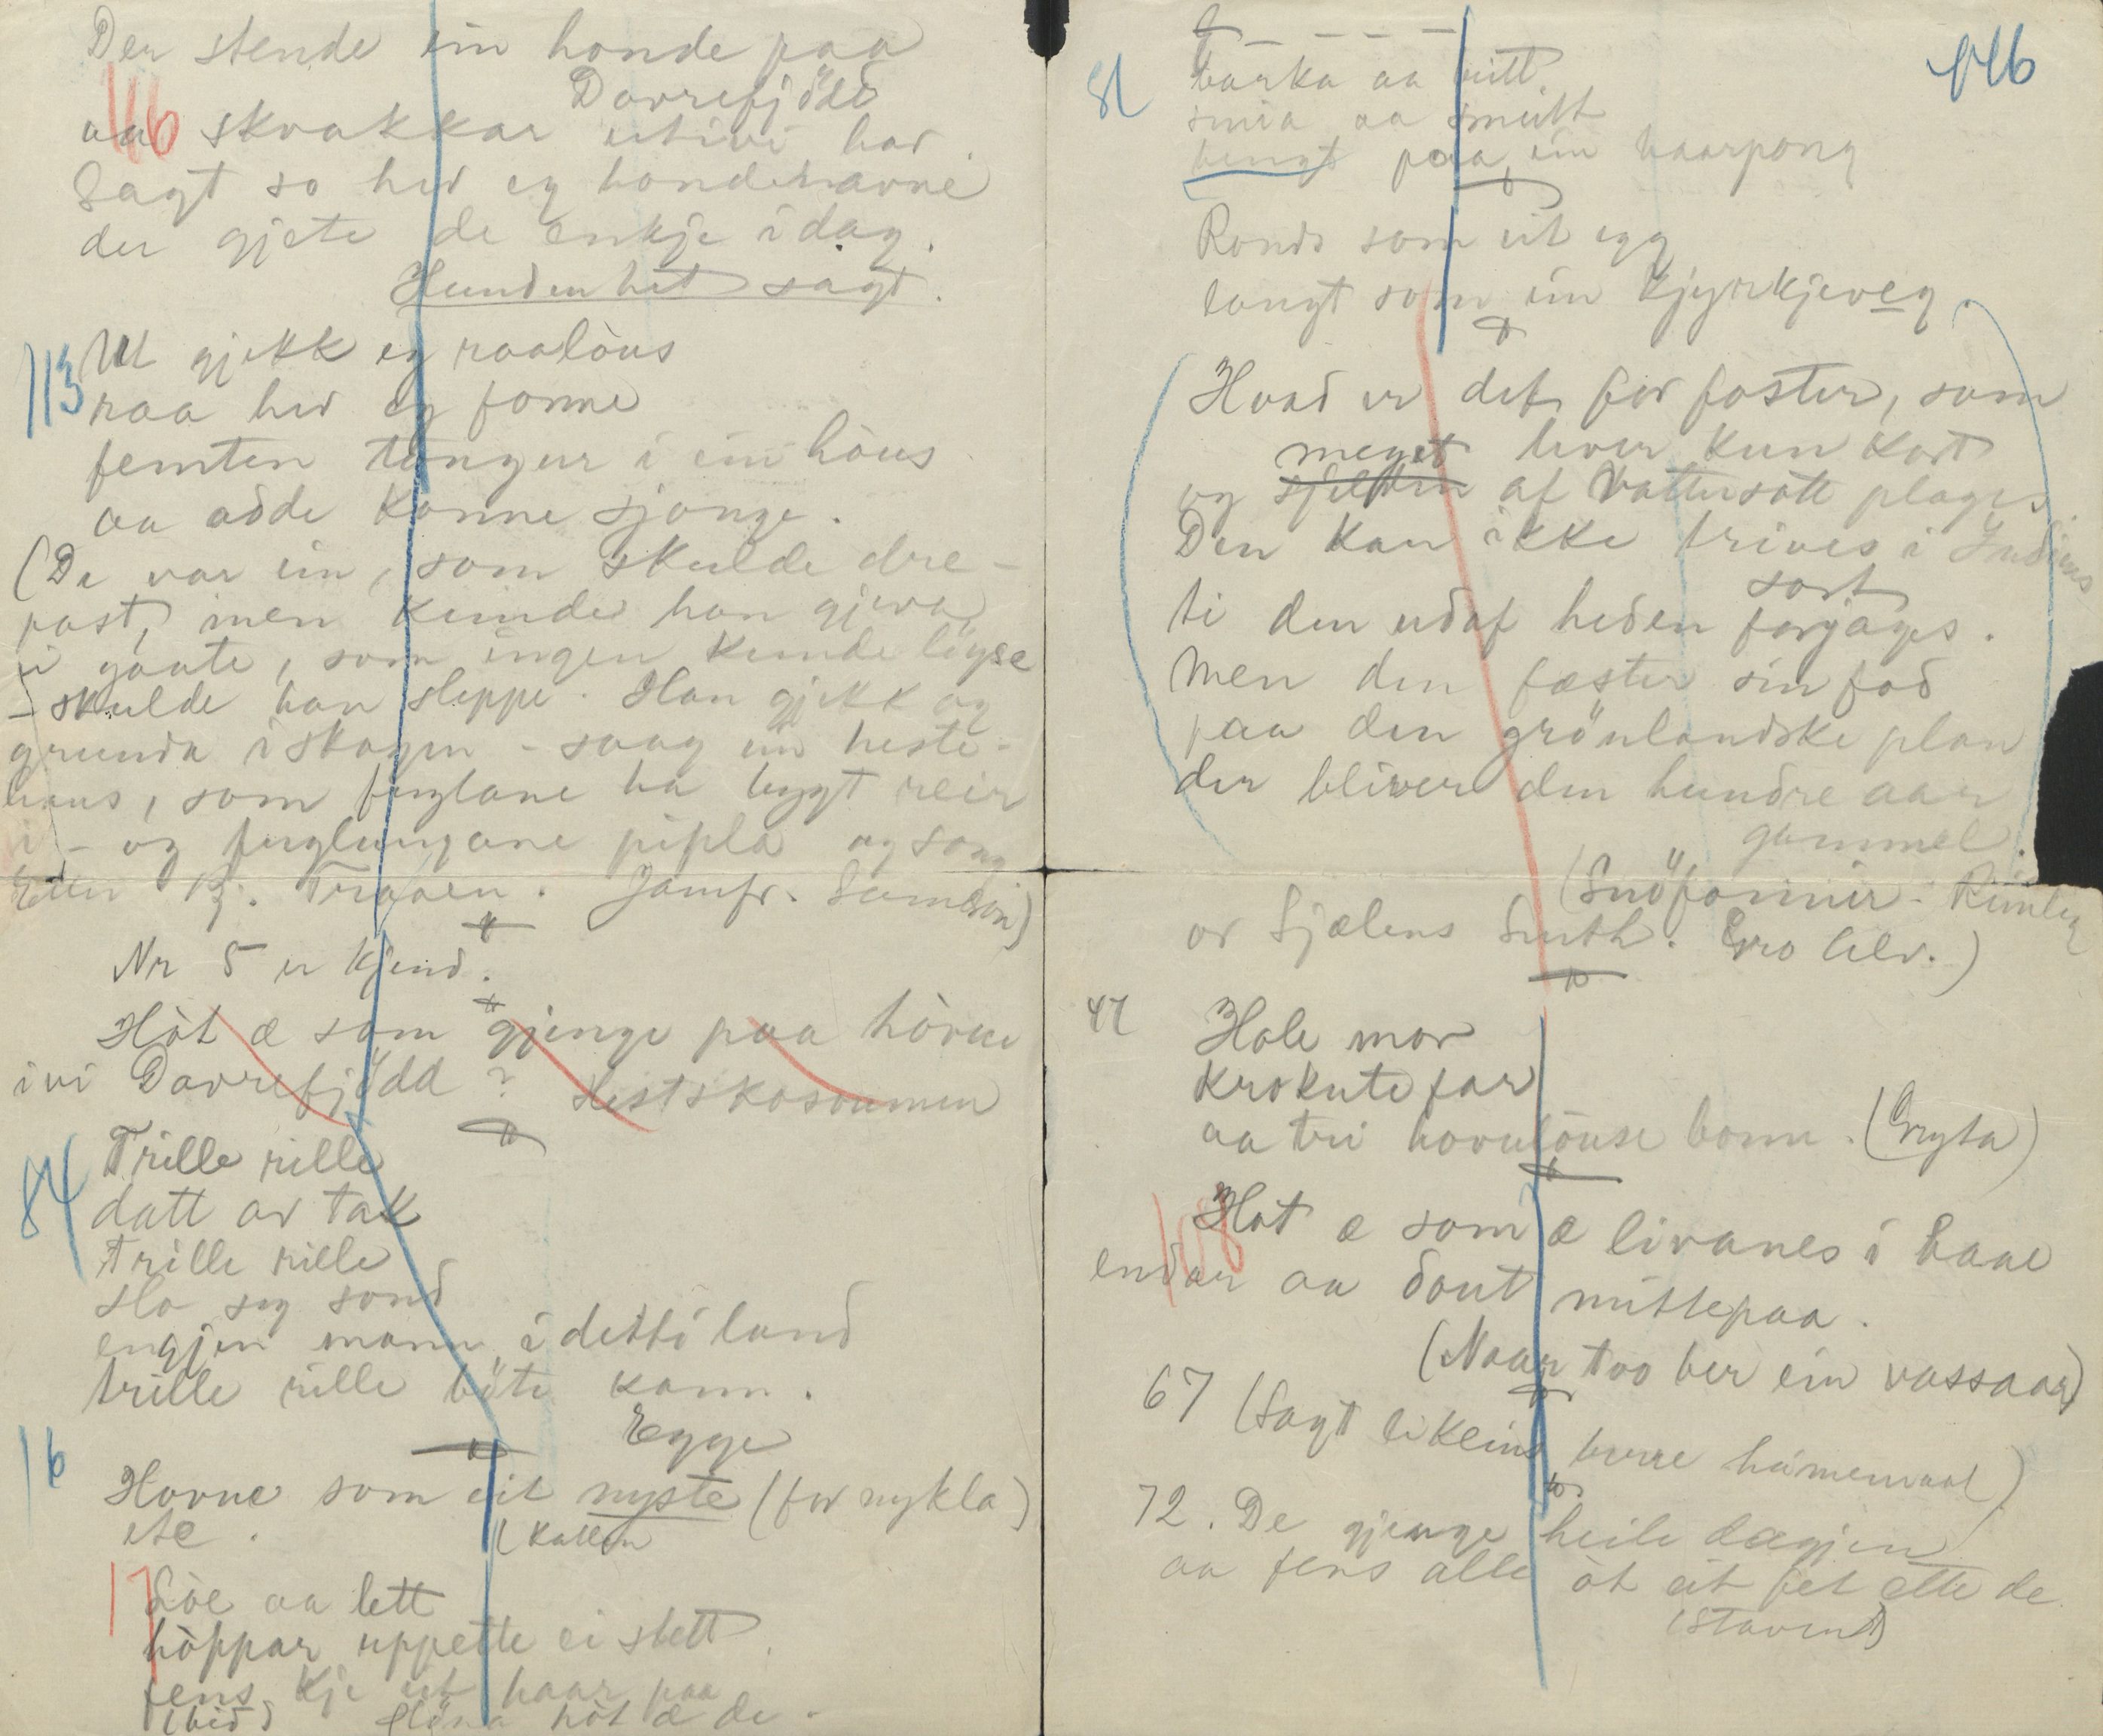 Der stende ein honde paa
Dovrefjödd
116
aa skvakkar utivi hav.
Sagt so her eg hondenavne
der gjete de enkje idag.
Hunden het sagt.
113
Ut gjekk eg raalòus
raa her eg fonne
femten tongur i ein hòus
aa adde konne sjonge.
(De var ein, som skulde dre-
past, men kunde han gjeva
ei gaate, som ingen kunde löyse
- skulde han sleppe. Han gjekk og
grunda i skogen - saag ein heste-
haus, som fuglane ha bygt reir
i - og fuglungane pipla og song
Etter Kj. Traaen. Jamfr. Samson)
Nr 5 er kjend.
Hòt æ som gjenge paa hòvue
ivi Dovrefjödd? Hestskosoumen
84
Trille rille
datt av tak
Trille rille
slo seg sond
engjen mann i detti land
trille rille böte kann.
Egge
16
Hovue som eit nyste (for nykla)
etc.
(Katten
17
Lòe aa lett
hòppar uppette ei slett
fens kje eit haar paa
hòt æ de.
146
81
barka aa
aa smutt
paa ein haarpong
Rondt som eit egg
langt som ein kjyrkjeveg.
Hvad er det for foster, som
meget lever kun kort
og sjelden af Vattersott plages
Den kan ikke trives i Indiens
sort
ti den udaf heden forjages.
Men den fæster sin fod
paa den grönlandske plan
der bliver den hundre aar
gammel.
(Snöfonnir - Rimleg
or Sjælens Gro Alv.)
47
Hole mor
krokute far
aa tri hovulòuse bonn. (Gryta)
108
Hòt æ som æ livanes i baae
endar aa dout mittepaa.
(Naar too ber ein vassaa)
67 (Sagt likeins berre
72. De gjenge heile dagjen
aa fens alle òt eit fet ette de
(Staven)